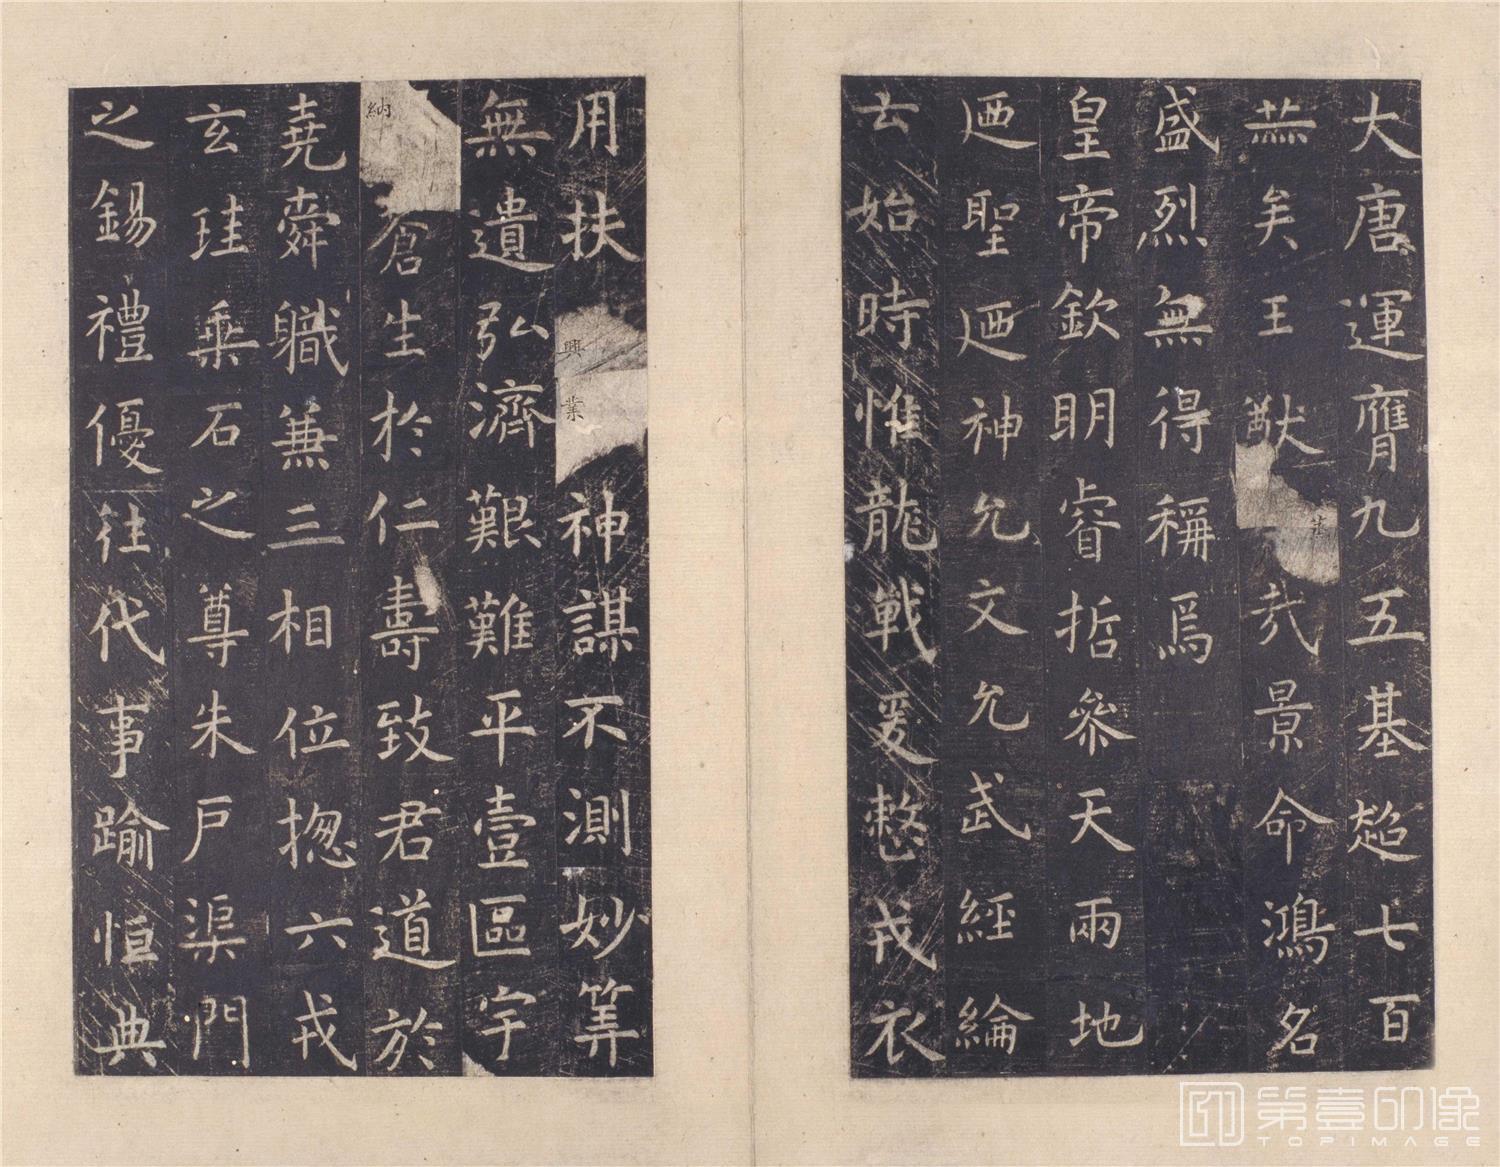 大唐運膺九五基超七百
蕪矣王猷茂哉景命鴻名
盛烈無得稱焉
皇帝欽明睿哲參天兩地
迺聖迺神允文允武經綸
云始時惟龍戰爰整戎衣
用扶興業神謀不測妙筭
無遺弘濟艱難平壹區宇
納蒼生於仁壽致君道於
堯舜職兼三相位揔六戎
玄珪乘石之尊朱戶渠門
之錫禮優往代事踰恒典
第壹印像
TOPIMAGE